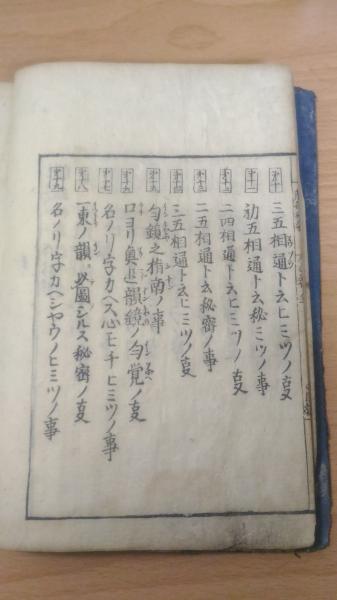 第十 三五相通ト云ヒミツノ事
第十一 初五相通ト云秘ミツノ事
第十二 二四相通ト云ヒミツノ事
第十三 二五相通ト云秘密ノ事
第十四 三五相通ト云ヒミツノ事
第十五 匀鏡之指南ノ事
第十六 口ヨリ奥迠韻鏡ノ匀覚ノ事
第十七 名ノリ字カヘス心モチヒミツノ事
第十八 一東ノ韻ゟ必圖シルス秘密ノ事
第十九 名ノリ字カヘシヤウノヒミツノ事